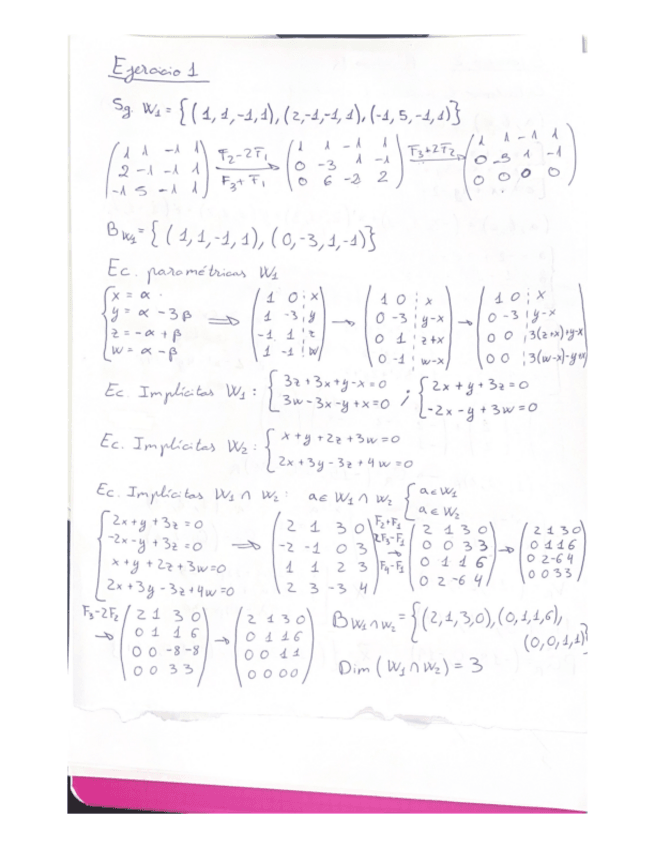 Ejercicio 1
Sg. W₁ = {(1, 1, -1, 1), (2, -1, -1, 1), (-1, 5, -1, 1)}
(1 1 -1 1 / 2 -1 -1 1 / -1 5 -1 1) F₂-2F₁ F₃+F₁ → (1 1 -1 1 / 0 -3 1 -1 / 0 6 -2 2) F₃+2F₂ → (1 1 -1 1 / 0 -3 1 -1 / 0 0 0 0)
B_W₁ = {(1, 1, -1, 1), (0, -3, 1, -1)}
Ec. paramétricas W₁
{x = α / y = α - 3β / z = -α + β / w = α - β ⇒ (1 0 ¦ x / 1 -3 ¦ y / -1 1 ¦ z / 1 -1 ¦ w) → (1 0 ¦ x / 0 -3 ¦ y-x / 0 1 ¦ z+x / 0 -1 ¦ w-x) → (1 0 ¦ x / 0 -3 ¦ y-x / 0 0 ¦ 3(z+x)+y-x / 0 0 ¦ 3(w-x)-y+x)
Ec. Implícitas W₁: {3z+3x+y-x=0 / 3w-3x-y+x=0 ; {2x+y+3z=0 / -2x-y+3w=0
Ec. Implícitas W₂: {x+y+2z+3w=0 / 2x+3y-3z+4w=0
Ec. Implícitas W₁ ∩ W₂: a∈ W₁ ∩ W₂ {a∈W₁ / a∈W₂
{2x+y+3z=0 / -2x-y+3z=0 / x+y+2z+3w=0 / 2x+3y-3z+4w=0 ⇒ (2 1 3 0 / -2 -1 0 3 / 1 1 2 3 / 2 3 -3 4) F₂+F₁ 2F₃-F₁ → F₄-F₁ (2 1 3 0 / 0 0 3 3 / 0 1 1 6 / 0 2 -6 4) → (2 1 3 0 / 0 1 1 6 / 0 2 -6 4 / 0 0 3 3)
F₃-2F₂ → (2 1 3 0 / 0 1 1 6 / 0 0 -8 -8 / 0 0 3 3) → (2 1 3 0 / 0 1 1 6 / 0 0 1 1 / 0 0 0 0) B_W₁∩W₂ = {(2,1,3,0), (0,1,1,6),
(0,0,1,1)}
Dim (W₁ ∩ W₂) = 3